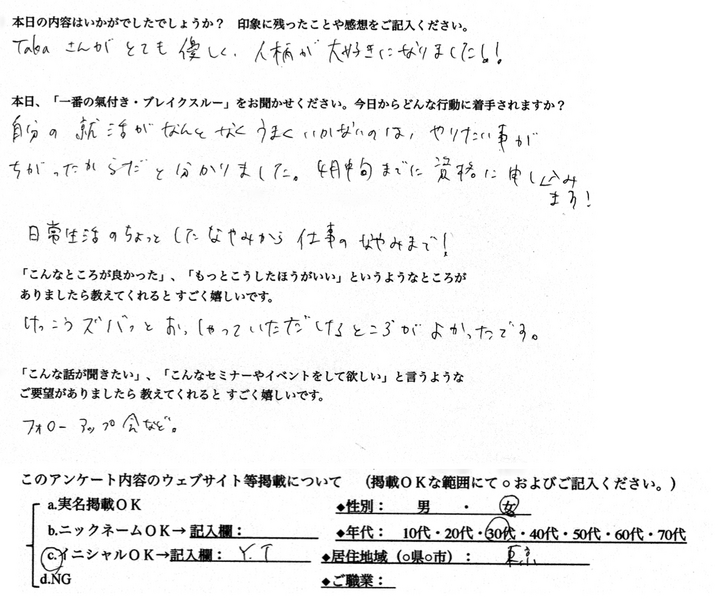 本日の内容はいかがでしたでしょうか？　印象に残ったことや感想をご記入ください。
Takaさんがとても優しく、人柄が大好きになりました!!
本日、「一番の氣付き・ブレイクスルー」をお聞かせください。今日からどんな行動に着手されますか？
自分の就活がなんとなくうまくいかないのは、やりたい事が
ちがったからだと分かりました。4月中旬までに資格に申し込み
ます!
日常生活のちょっとしたなやみから仕事のなやみまで!
「こんなところが良かった」、「もっとこうしたほうがいい」というようなところが
ありましたら教えてくれると すごく嬉しいです。
けっこうズバッとおっしゃっていただけるところがよかったです。
「こんな話が聞きたい」、「こんなセミナーやイベントをして欲しい」と言うような
ご要望がありましたら 教えてくれると すごく嬉しいです。
フォローアップ会など。
このアンケート内容のウェブサイト等掲載について　（掲載ＯＫな範囲にて○およびご記入ください。）
a.実名掲載ＯＫ　◆性別：　男　・　女
b.ニックネームＯＫ→ 記入欄：　◆年代：　10代・20代・30代・40代・50代・60代・70代
c.イニシャルＯＫ→記入欄：　Y.T　◆居住地域（○県○市）：　東京
d.NG　◆ご職業：